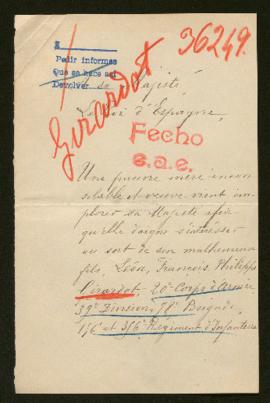 36249.
Pedir informes
Que se hace así
Devolver
Girardot
A sa Majesté
Le Roi d'Espagne,
Fecho
e.a.e.
Une pauvre mère incon-
solable et veuve vient im-
plorer sa Majesté afin
qu'elle daigne s'intéresser
au sort de son malheureux
fils, Léon, François, Philippe
Girardot, 20e Corps d'Armée
39e Division, 78e Brigade,
146e et 356e Régiment d'Infanterie